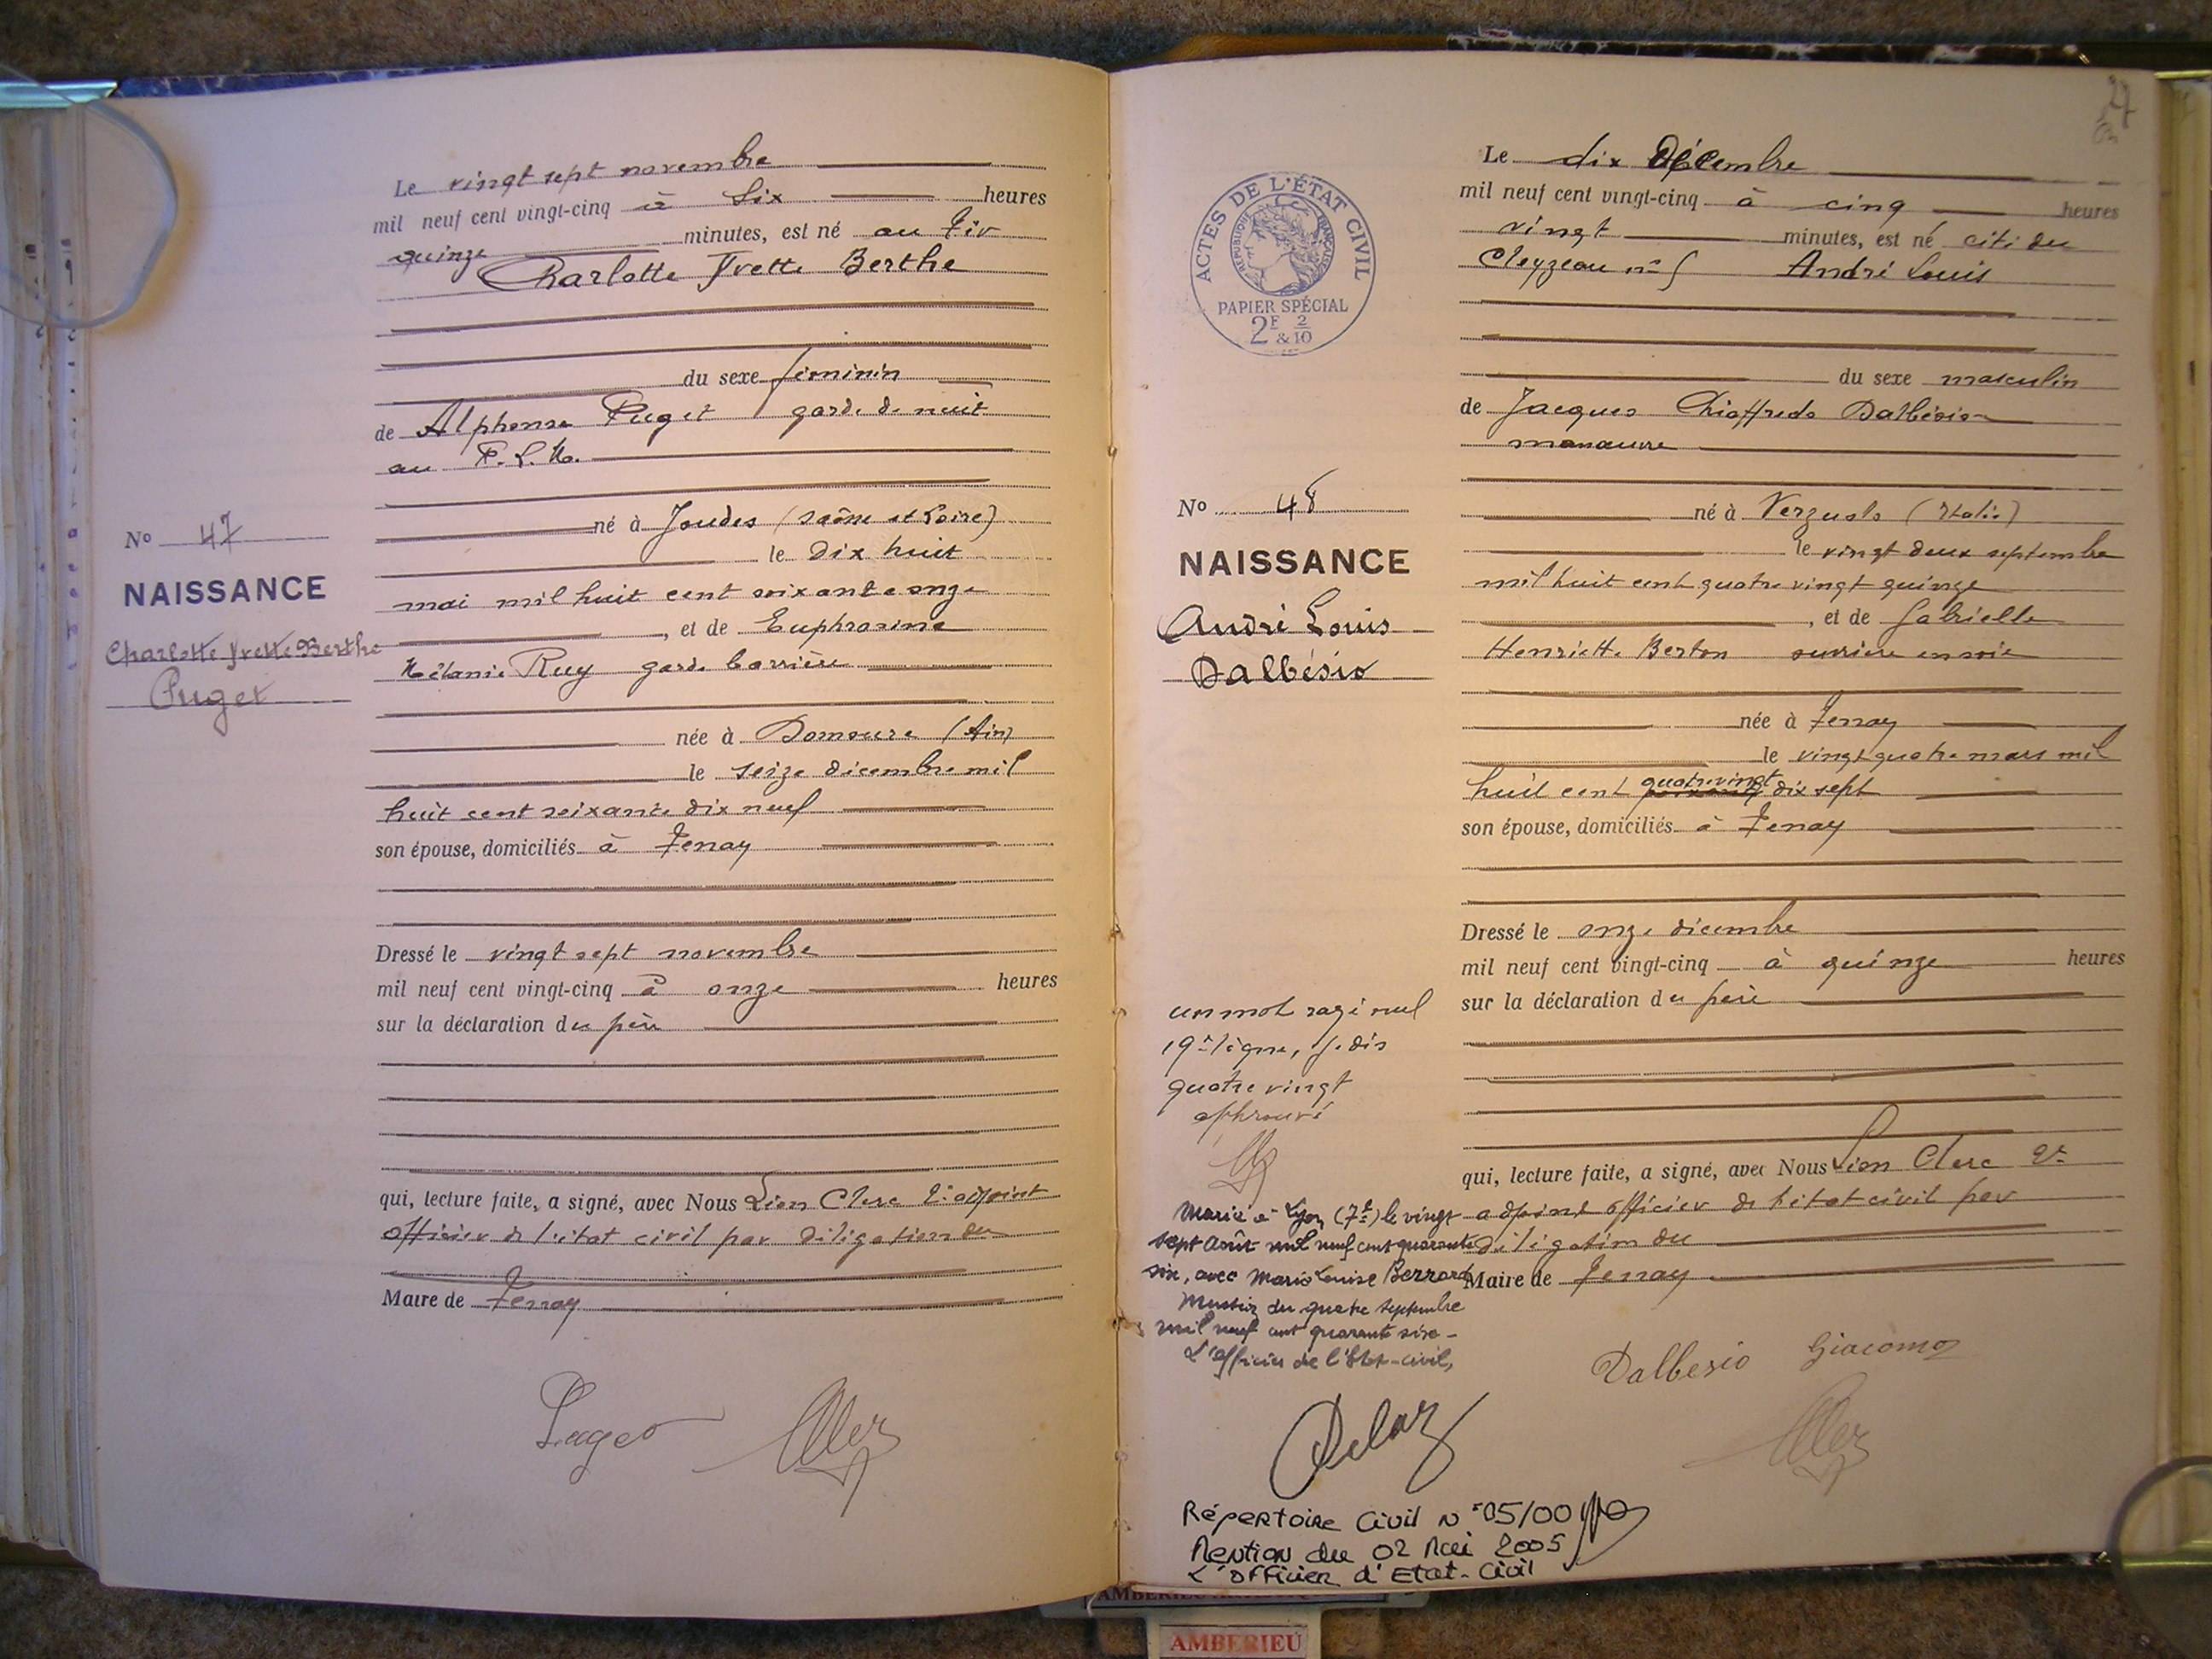 Le vingt sept novembre
mil neuf cent vingt-cinq à six heures
quinze minutes, est né au Tiv
Charlotte Yvette Berthe
du sexe féminin
de Alphonse Puget garde de nuit
au P.L.M.
né à Joudes (Saône et Loire)
le dix huit
mai mil huit cent soixante onze
, et de Euphrasine
Mélanie Ruy garde barrière
née à Domsure (Ain)
le seize décembre mil
huit cent soixante dix neuf
son épouse, domiciliés à Tenay
Dressé le vingt sept novembre
mil neuf cent vingt-cinq à onze heures
sur la déclaration du père
qui, lecture faite, a signé, avec Nous Léon Clerc 2e adjoint
officier de l'état civil par délégation du
Maire de Tenay
Puget
No 47
NAISSANCE
Charlotte Yvette Berthe
Puget
27
ACTES DE L'ÉTAT CIVIL
RÉPUBLIQUE FRANÇAISE
PAPIER SPÉCIAL
2F 2
&10
Le dix Décembre
mil neuf cent vingt-cinq à cinq heures
vingt minutes, est né cité du
Cleyzeau n° 5 André Louis
du sexe masculin
de Jacques Chiaffredo Dalbésio
manœuvre
né à Verzuolo (Italie)
le vingt deux septembre
mil huit cent quatre vingt quinze
, et de Gabrielle
Henriette Berton ouvrière en soie
née à Tenay
le vingt quatre mars mil
huit cent quatre vingt dix sept
son épouse, domiciliés à Tenay
Dressé le onze décembre
mil neuf cent vingt-cinq à quinze heures
sur la déclaration du père
qui, lecture faite, a signé, avec Nous Léon Clerc 2e
adjoint officier de l'état civil par
délégation du
Maire de Tenay
Dalbesio Giacomo
No 48
NAISSANCE
André Louis
Dalbésio
un mot rayé nul
19e ligne, je dis
quatre vingt
approuvé
Marié à Lyon (7e) le vingt
sept août mil neuf cent quarante
six, avec Marie Louise Berrard
Mention du quatre septembre
mil neuf cent quarante six -
L'officier de l'Etat-civil,
Delaz
Répertoire Civil N° 05/00
Mention du 02 Mai 2005
L'officier d'Etat-Civil
AMBERIEU
AMBERIEU